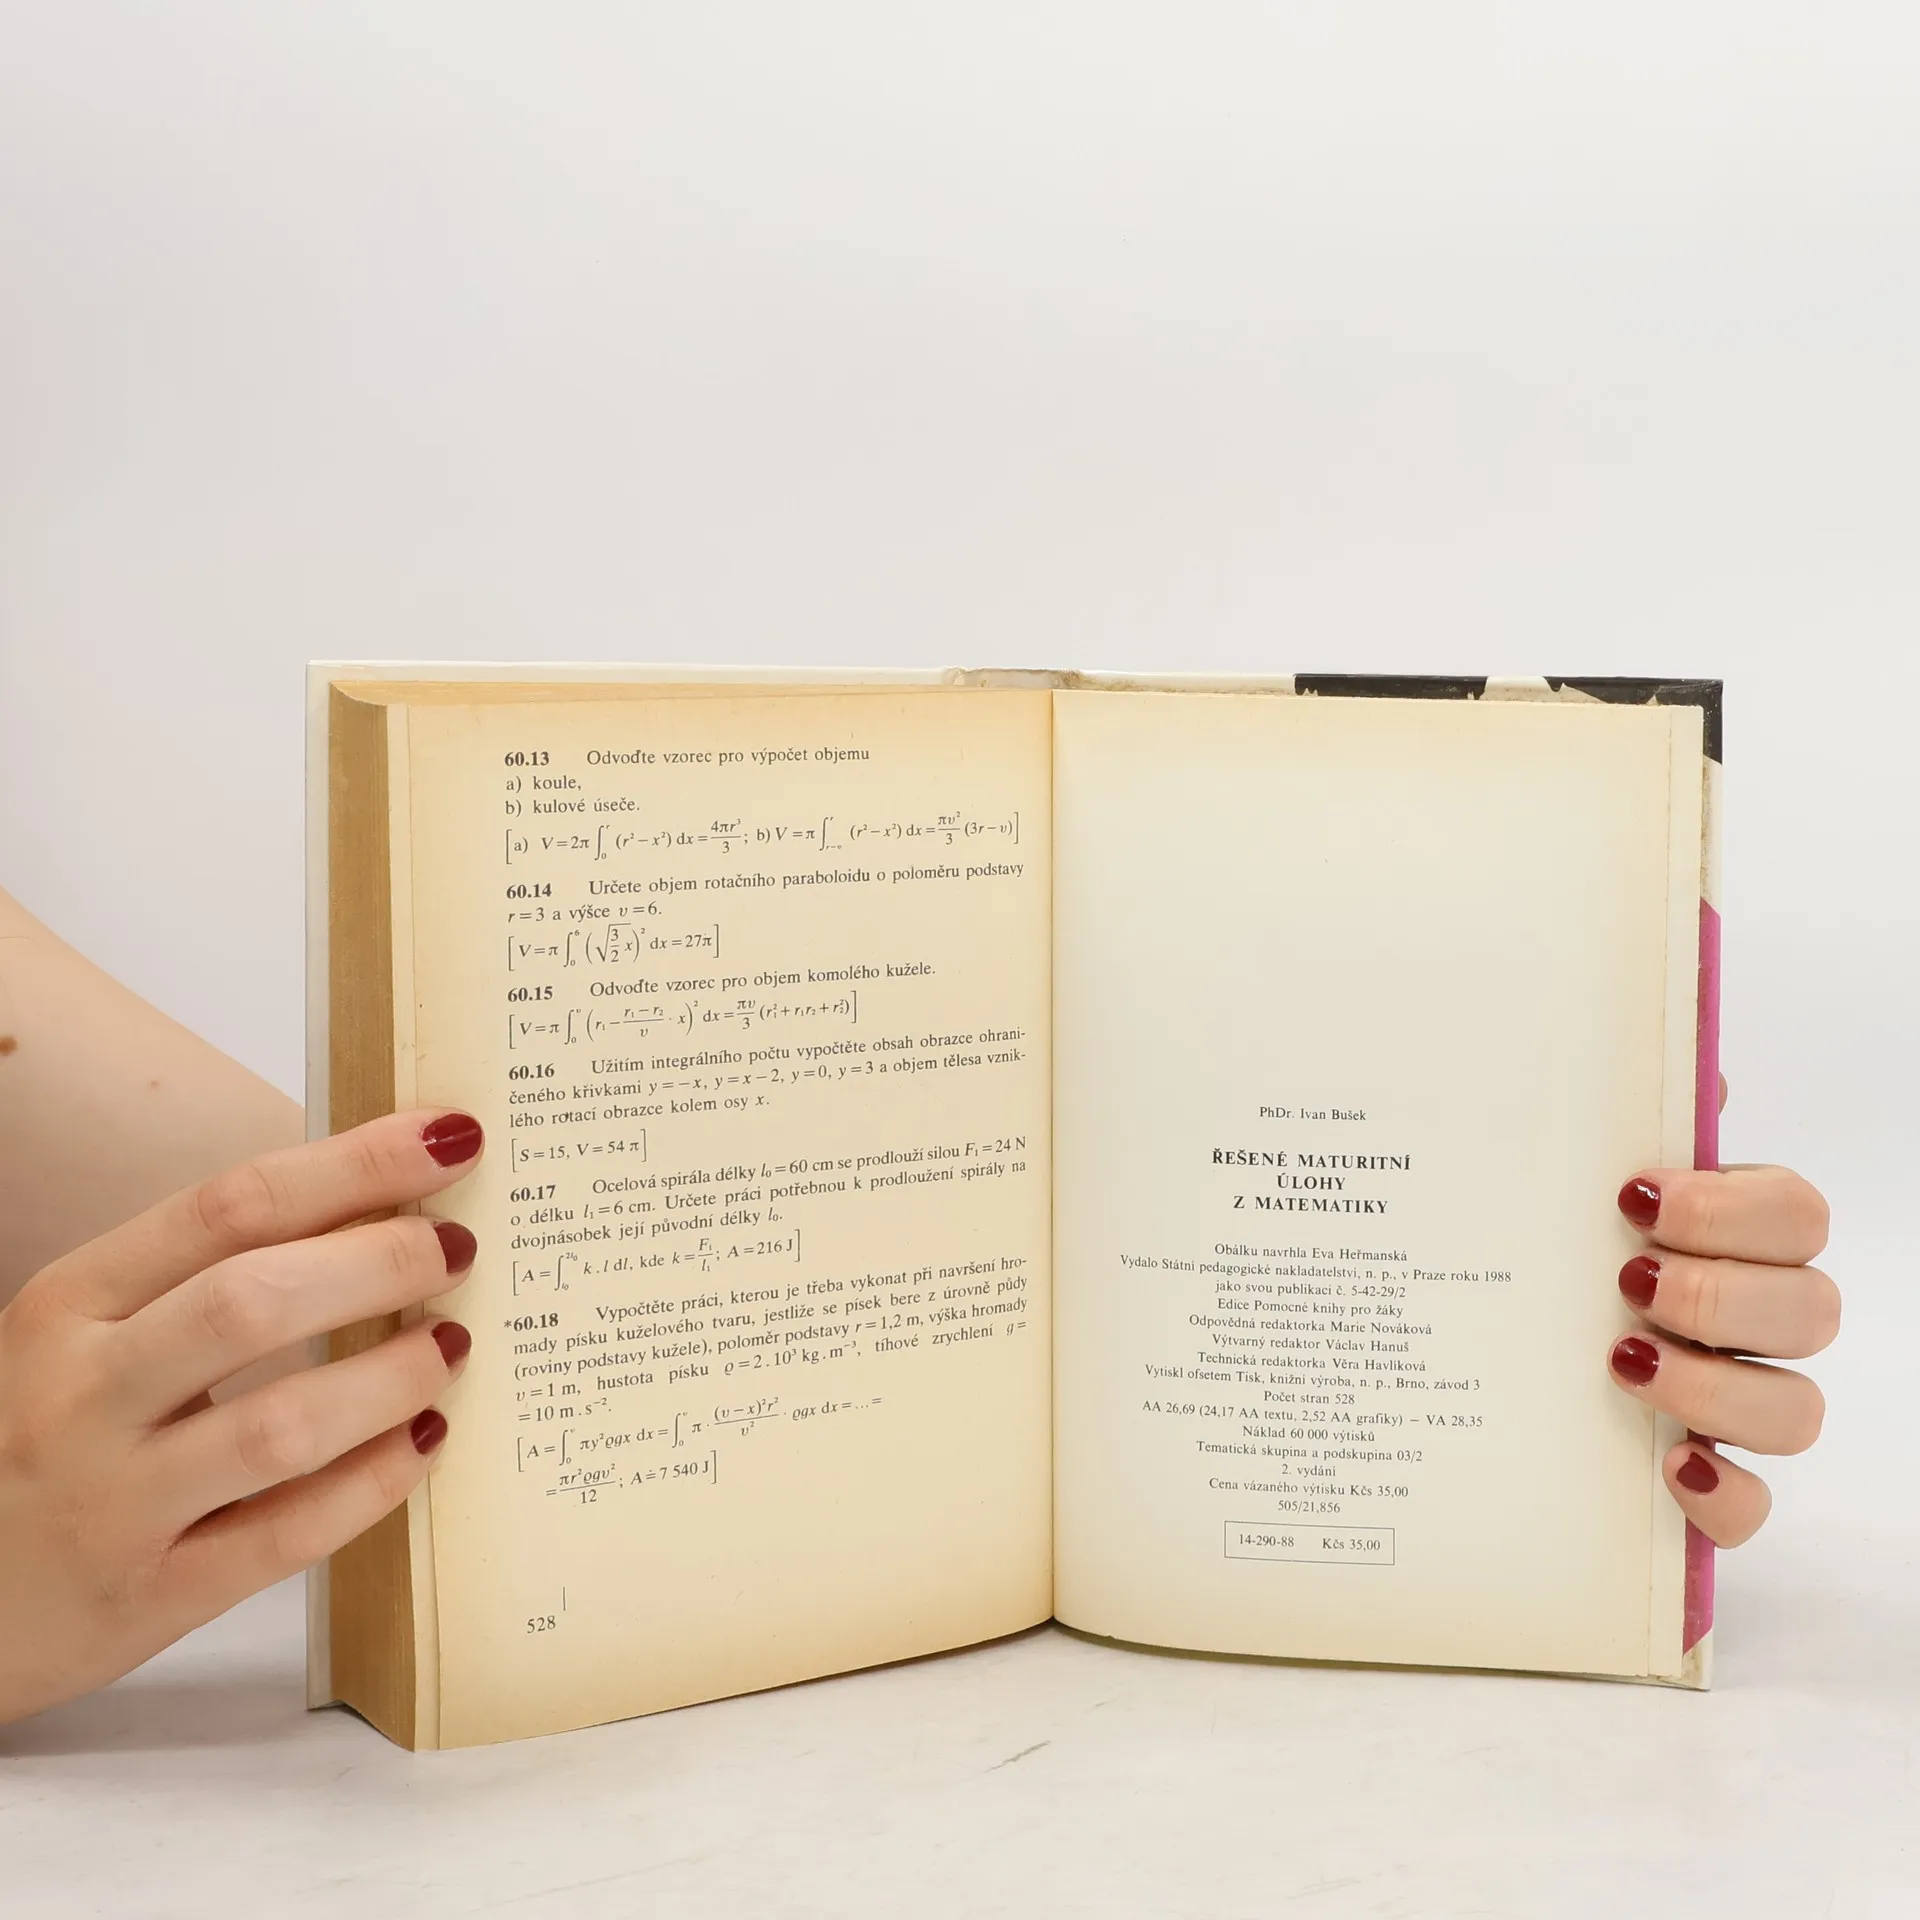 60.13 Odvoďte vzorec pro výpočet objemu
a) koule,
b) kulové úseče.
[a) V=2π∫₀ʳ (r²−x²) dx=4πr³/3; b) V=π∫ᵣ₋ᵥʳ (r²−x²) dx=πv²/3 (3r−v)]
60.14 Určete objem rotačního paraboloidu o poloměru podstavy
r=3 a výšce v=6.
[V=π∫₀⁶ (√(3/2 x))² dx=27π]
60.15 Odvoďte vzorec pro objem komolého kužele.
[V=π∫₀ᵛ (r₁−(r₁−r₂)/v · x)² dx=πv/3 (r₁²+r₁r₂+r₂²)]
60.16 Užitím integrálního počtu vypočtěte obsah obrazce ohrani-
čeného křivkami y=−x, y=x−2, y=0, y=3 a objem tělesa vznik-
lého rotací obrazce kolem osy x.
[S=15, V=54 π]
60.17 Ocelová spirála délky l₀=60 cm se prodlouží silou F₁=24 N
o délku l₁=6 cm. Určete práci potřebnou k prodloužení spirály na
dvojnásobek její původní délky l₀.
[A=∫ₗ₀²ˡ⁰ k.l dl, kde k=F₁/l₁; A=216 J]
*60.18 Vypočtěte práci, kterou je třeba vykonat při navršení hro-
mady písku kuželového tvaru, jestliže se písek bere z úrovně půdy
(roviny podstavy kužele), poloměr podstavy r=1,2 m, výška hromady
v=1 m, hustota písku ϱ=2.10³ kg.m⁻³, tíhové zrychlení g=
=10 m.s⁻².
[A=∫₀ᵛ πy²ϱgx dx=∫₀ᵛ π·(v−x)²r²/v² · ϱgx dx=...=
=πr²ϱgv²/12; A≐7 540 J]
528
PhDr. Ivan Bušek
ŘEŠENÉ MATURITNÍ
ÚLOHY
Z MATEMATIKY
Obálku navrhla Eva Heřmanská
Vydalo Státní pedagogické nakladatelství, n. p., v Praze roku 1988
jako svou publikaci č. 5-42-29/2
Edice Pomocné knihy pro žáky
Odpovědná redaktorka Marie Nováková
Výtvarný redaktor Václav Hanuš
Technická redaktorka Věra Havlíková
Vytiskl ofsetem Tisk, knižní výroba, n. p., Brno, závod 3
Počet stran 528
AA 26,69 (24,17 AA textu, 2,52 AA grafiky) – VA 28,35
Náklad 60 000 výtisků
Tematická skupina a podskupina 03/2
2. vydání
Cena vázaného výtisku Kčs 35,00
505/21,856
14-290-88 Kčs 35,00